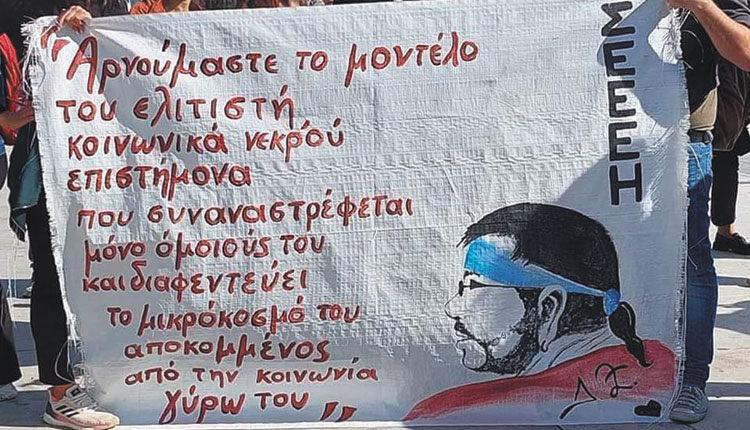 "Αρνούμαστε το μοντέλο
του ελιτιστή,
κοινωνικά νεκρού
επιστήμονα
που συναναστρέφεται
μόνο όμοιούς του
και διαφεντεύει
το μικρόκοσμό του
αποκομμένος
από την κοινωνία
γύρω του"
ΣΕΕΕΗ